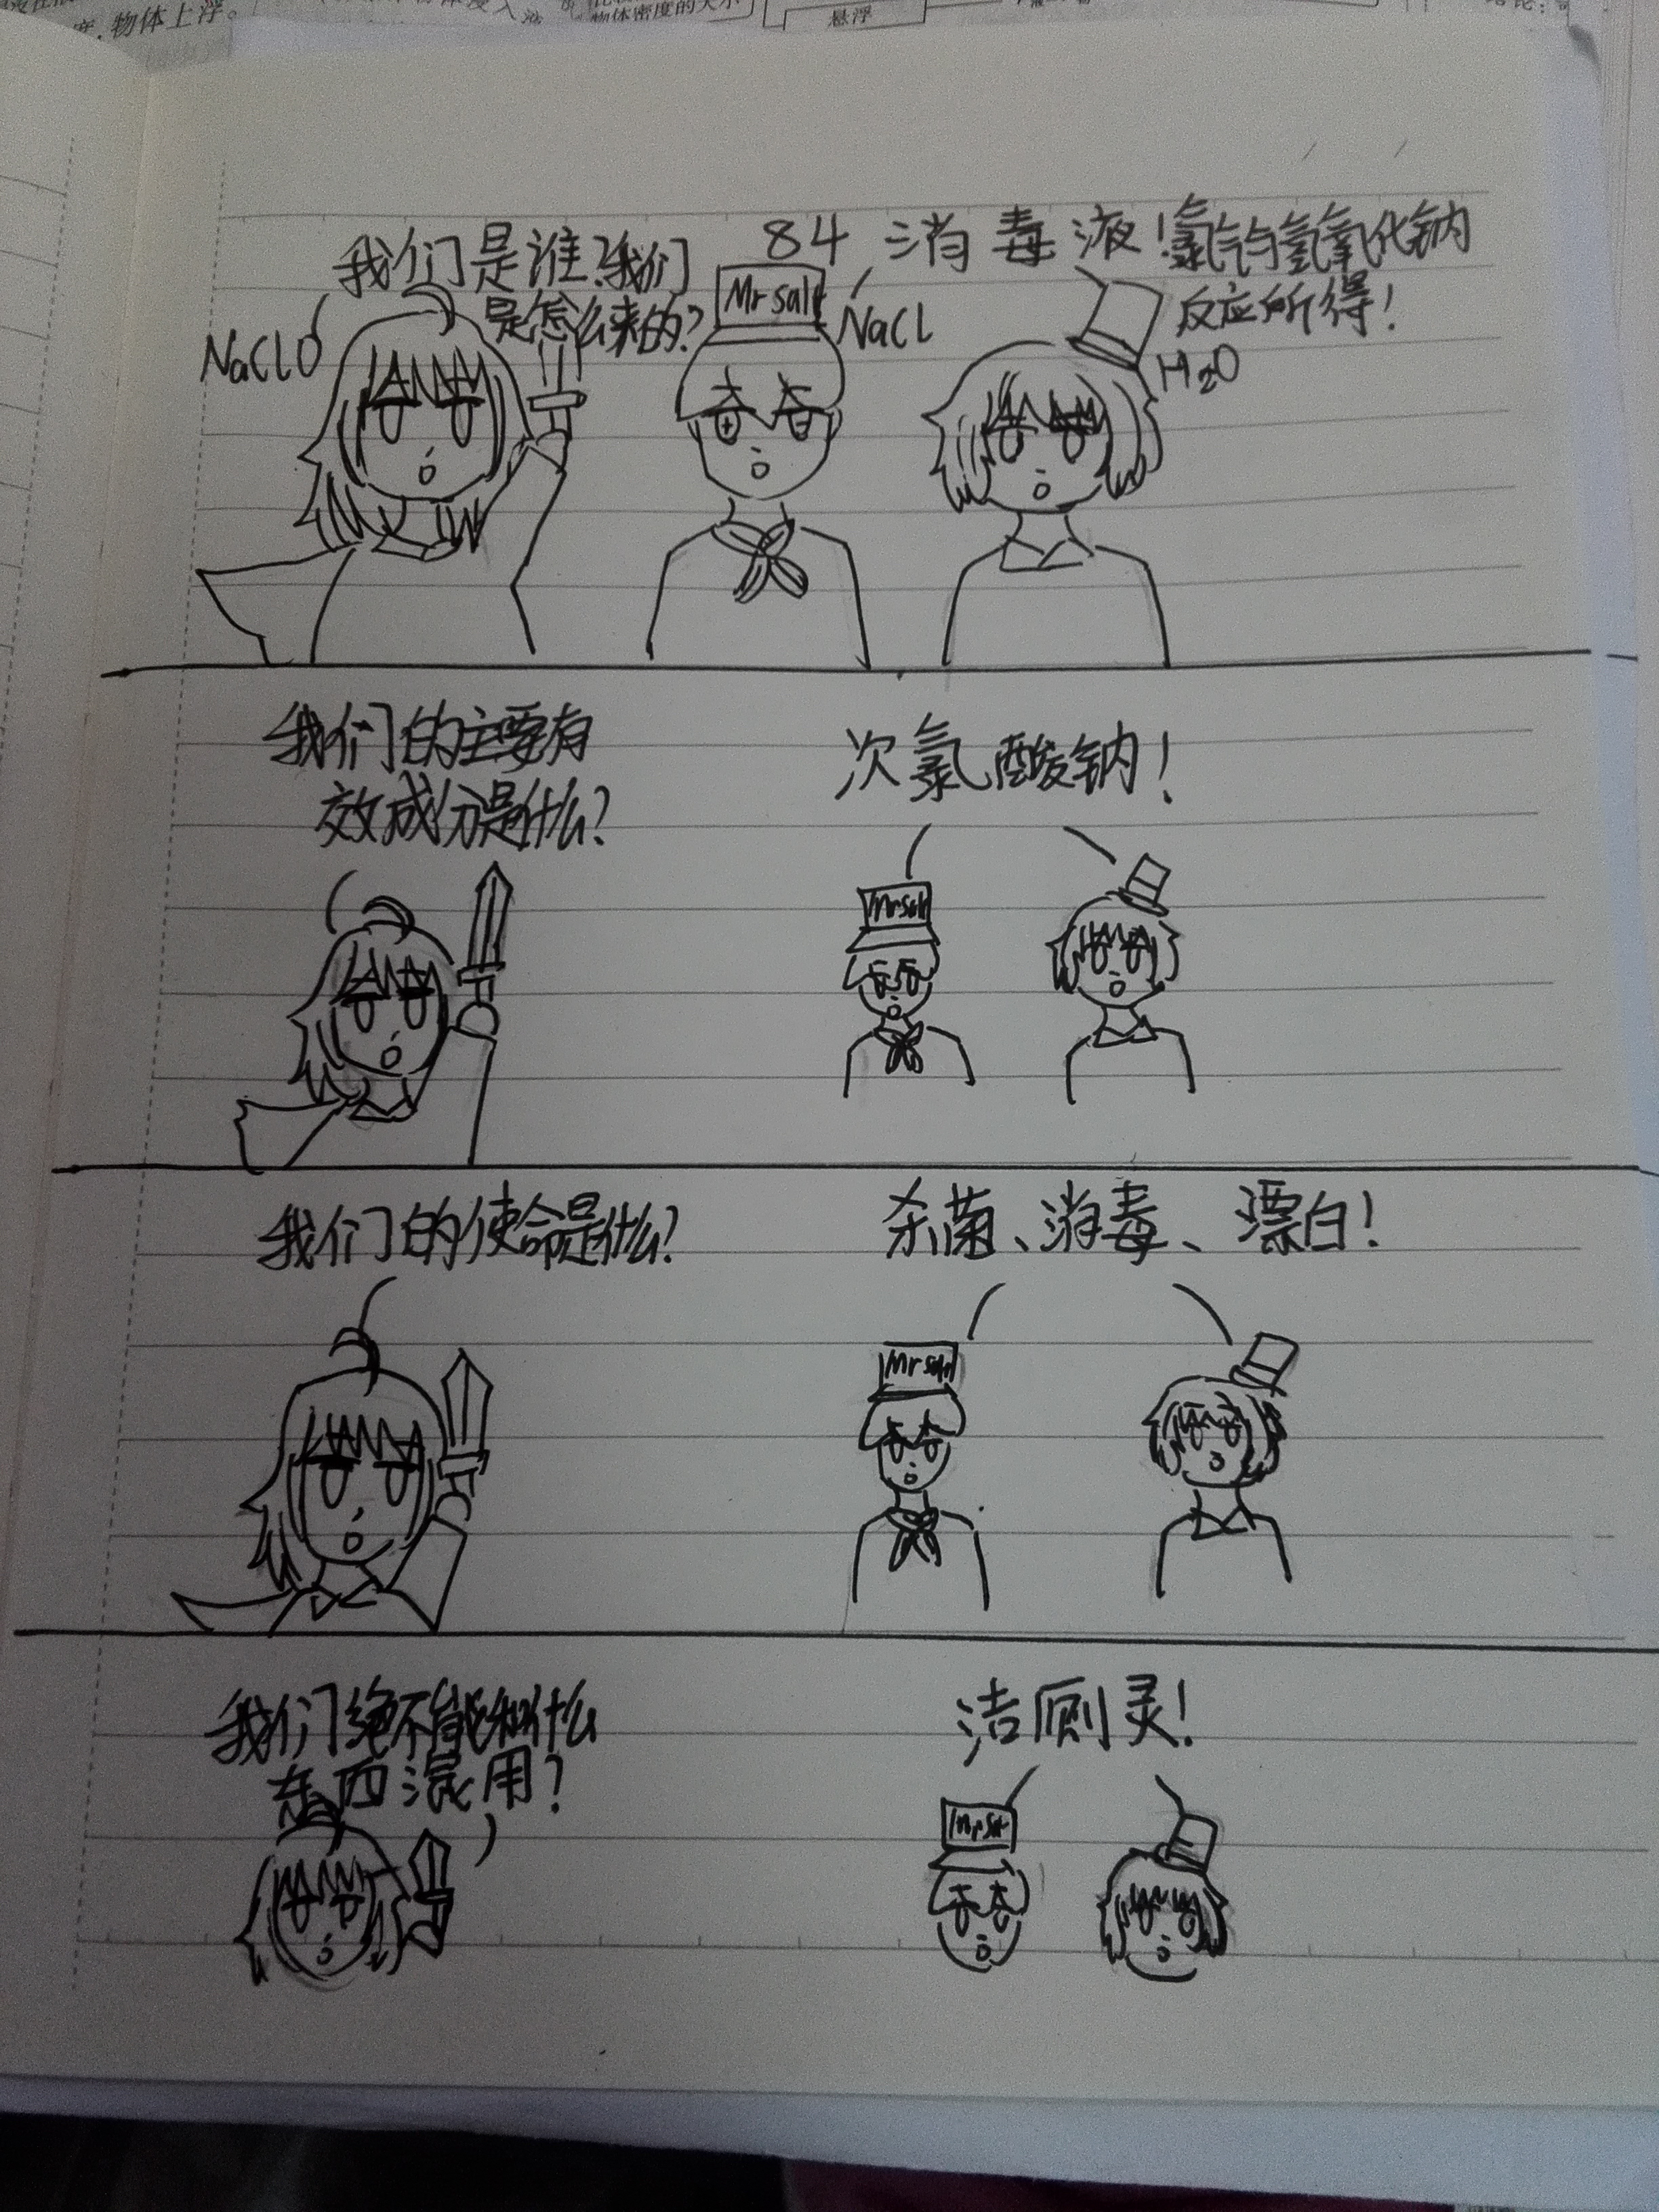 度，物体上浮。
物体密度的大小
悬浮
我们是谁？我们
是怎么来的？
84消毒液！氯气与氢氧化钠
反应所得！
NaClO
Mr salt
NaCl
H₂O
我们的主要有
效成分是什么？
次氯酸钠！
Mr salt
我们的使命是什么？
杀菌、消毒、漂白！
Mr salt
我们绝不能和什么
东西混用？
洁厕灵！
Mr salt